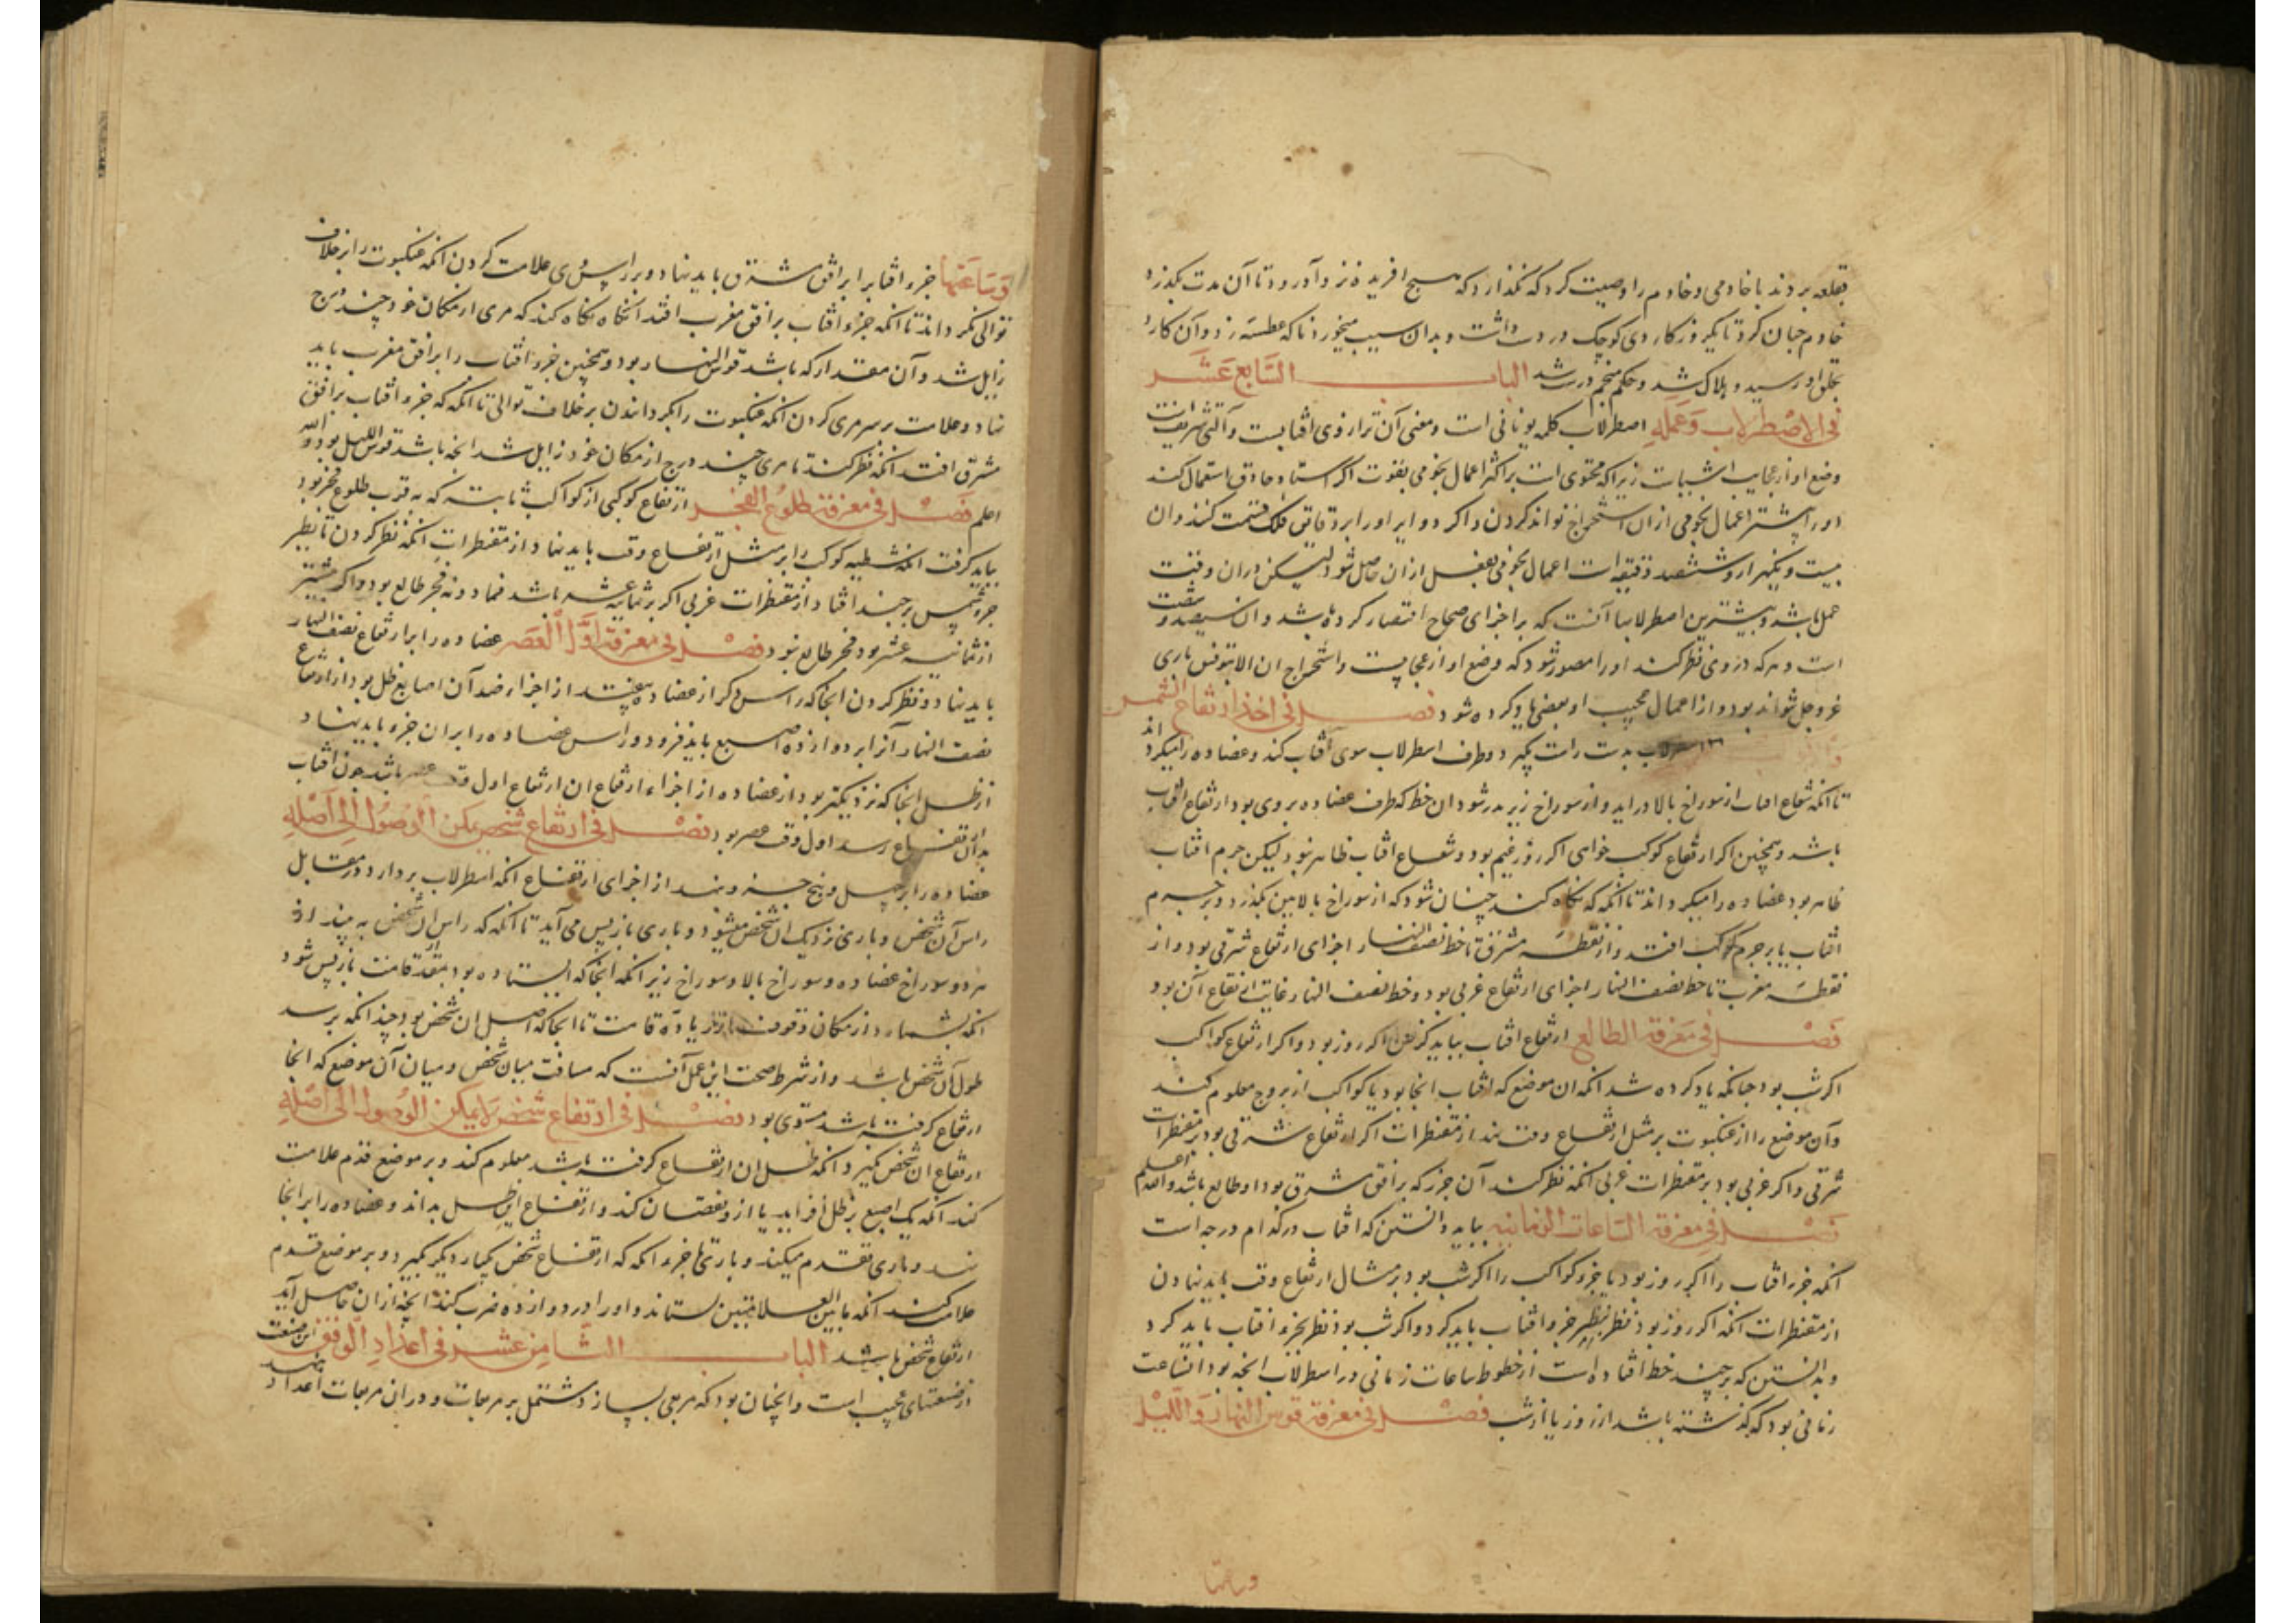 بقلعه بردند با خادمی و خادم را وصیت کرد که نگذارد که هیچ افریده نزد او در رود تا آن مدت بگذرد
خادم جنان کرد تا یکروز کاردی کوچک در دست داشت و بدان سیب میخورد ناکه عطسه زد و آن کارد
بحلق او رسید و هلاک شد و حکم منجم درست شد الباب السابع عشر
فی الاصطرلاب وعمله اصطرلاب کلمه یونانی است و معنی آن ترازوی افتابست و آلتی شریف است
وضع او از عجایب اشیاست زیرا که محتوی است بر اکثر اعمال نجومی بقوت اکر استاد حاذق استعمال کند
اورا بیشتر اعمال نجومی ازان استخراج تواند کردن و اکر دوایر اورا بر دقایق فلک قسمت کنند و ان
بیست و یکهزار و ششصد دقیقه است اعمال نجومی بفعل ازان حاصل شود لیکن دران وقت
عمل باشد و بیشترین اصطرلابها آنست که بر اجزای صحاح اقتصار کرده باشد و ان سیصد و شصت
است و هر که دروی نظر کند اورا مصور شود که وضع او از عجایبست و استخراج ان الا بتوفیق باری
عز و جل نتواند بود و از اعمال عجیب او بعضی یاد کرده شود فصل فی اخذ ارتفاع الشمس
اسطرلاب بدست راست بگیرد و طرف اسطرلاب سوی آفتاب کند و عضاده را میکرداند
تا انکه شعاع افتاب از سوراخ بالا دراید و از سوراخ زیر بدر شود ان خط که طرف عضاده بروی بود ارتفاع افتاب
باشد و همچنین اکر ارتفاع کوکب خواهی اکر روز غیم بود و شعاع افتاب ظاهر نبود لیکن جرم افتاب
ظاهر بود عضاده را میکرداند تا انکه که نکاه کند چنان شود که از سوراخ بالابین بگذرد و بر جرم
افتاب یا بر جرم کوکب افتد و از نقطه مشرق تا خط نصف النهار اجزای ارتفاع شرقی بود و از
نقطه مغرب تا خط نصف النهار اجزای ارتفاع غربی بود و خط نصف النهار غایت ارتفاع آن بود
فصل فی معرفة الطالع ارتفاع افتاب بباید کرفتن اکر روز بود و اکر ارتفاع کواکب
اکر شب بود جنانکه یاد کرده شد انکه ان موضع که افتاب انجا بود یا کواکب از بروج معلوم کند
و آن موضع را از عنکبوت بر مثل ارتفاع وقت نهد از مقنطرات اکر ارتفاع شرقی بود بر مقنطرات
شرقی و اکر غربی بود بر مقنطرات غربی انکه نظر کند آن جزر که بر افق مشرق بود او طالع باشد والله اعلم
فصل فی معرفة الساعات الزمانیه بباید دانستن که افتاب در کدام درجه است
انکه جزر افتاب را اکر روز بود یا جزو کواکب را اکر شب بود بر مثال ارتفاع وقت باید نهادن
از مقنطرات انکه اکر روز بود نظر بنظیر جزو افتاب باید کرد و اکر شب بود نظر بجزو افتاب باید کرد
و بدانستن که بر چند خط افتاده است از خطوط ساعات زمانی در اسطرلاب انچه بود انساعت
زمانی بود که کذشته باشد از روز یا از شب فصل فی معرفة قوس النهار واللیل
وساعتها
وساعتها جزو افتاب را بر افق مشرق باید نهاد و بر راس مری علامت کردن انکه عنکبوت را بر خلاف
توالی کرداند تا انکه جزو افتاب بر افق مغرب افتد انکاه نکاه کند که مری از مکان خود چند درج
زایل شد و آن مقدار که باشد قوس النهار بود و همچنین جزو افتاب را بر افق مغرب باید
نهاد و علامت بر سر مری کردن انکه عنکبوت را بکرداندن بر خلاف توالی تا انکه که جزو افتاب بر افق
مشرق افتد انکه نظر کند تا مری چند درج از مکان خود زایل شد انچه باشد قوس اللیل بود والله
اعلم فصل فی معرفة طلوع الفجر ارتفاع کوکبی از کواکب ثابته که بقرب طلوع فجر بود
بباید کرفت انکه شطیه کوکب را بر مثل ارتفاع وقت باید نهاد از مقنطرات انکه نظر کردن تا نظیر
جزو شمس بر چند افتاد از مقنطرات غربی اکر بر ثمانیه عشر باشد فمادونه فجر طالع بود و اکر بیشتر
از ثمانیه عشر بود فجر طالع نبود فصل فی معرفة اول العصر عضاده را بر ارتفاع نصف النهار
باید نهاد و نظر کردن انجا که راس دکر از عضاده بیفتد از اجزاء ضد آن اصابع ظل بود از ارتفاع
نصف النهار آنرا بر دوازده اصبع باید فزود و راس عضاده را بر ان جزو باید نهاد
از ظل انجا که نزدیکتر بود از عضاده از اجزاء ارتفاع ان ارتفاع اول وقت عصر باشد جون افتاب
بدان ارتفاع رسد اول وقت عصر بود فصل فی ارتفاع شخص یمکن الوصول الی اصله
عضاده را بر چهل و پنج جزو نهد از اجزای ارتفاع انکه اسطرلاب بردارد در مقابل
راس آن شخص و باری نزدیک ان شخص میشود و باری بازپس می آید تا انکه که راس ان شخص به بیند از
هر دو سوراخ عضاده و سوراخ بالا و سوراخ زیر انکه انجا که ایستاده بود بقدر قامت بازپس شود
انکه بشمارد از مکان وقوف با زیاده قامت تا انجا که اصل ان شخص بود چندانکه برسد
طول آن شخص باشد و از شرط صحت این عمل آنست که مسافت میان شخص و میان آن موضع که انجا
ارتفاع کرفته باشد مستوی بود فصل فی ارتفاع شخص لا یمکن الوصول الی اصله
ارتفاع ان شخص بکیرد انکه ظل ان ارتفاع کرفته باشد معلوم کند و بر موضع قدم علامت
کند انکه یک اصبع بر ظل افزاید یا ازو نقصان کند و ارتفاع این ظل بداند و عضاده را بر انجا
نهد و باری تقدم میکند و باری تاخر انکه که ارتفاع شخص یکبار دیکر بکیرد و بر موضع قدم
علامت کند انکه مابین العلامتین بستاند و اورا در دوازده ضرب کند انچه ازان حاصل آید
ارتفاع شخص باشد الباب الثامن عشر فی اعداد الوفق این صنعت
از صنعتهای عجیب است و انچنان بود که مربعی بسازد مشتمل بر مربعات و دران مربعات اعداد نهد